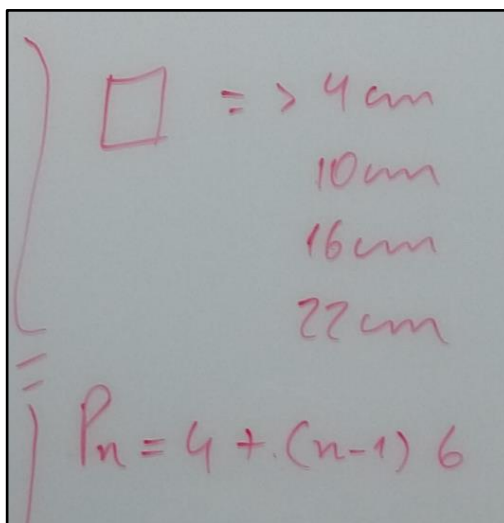 => 4 cm
10 cm
16 cm
22 cm
Pn = 4 + (n-1) 6